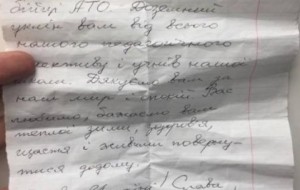 бійці АТО. Доземний
уклін вам від всього
нашого педагогічного
колективу і учнів нашої
школи. Дякуємо вам за
наш мир і спокій. Вас
любимо, бажаємо вам
тепла зими, здоров'я,
щастя і живими поверну-
тися додому.
! Слава